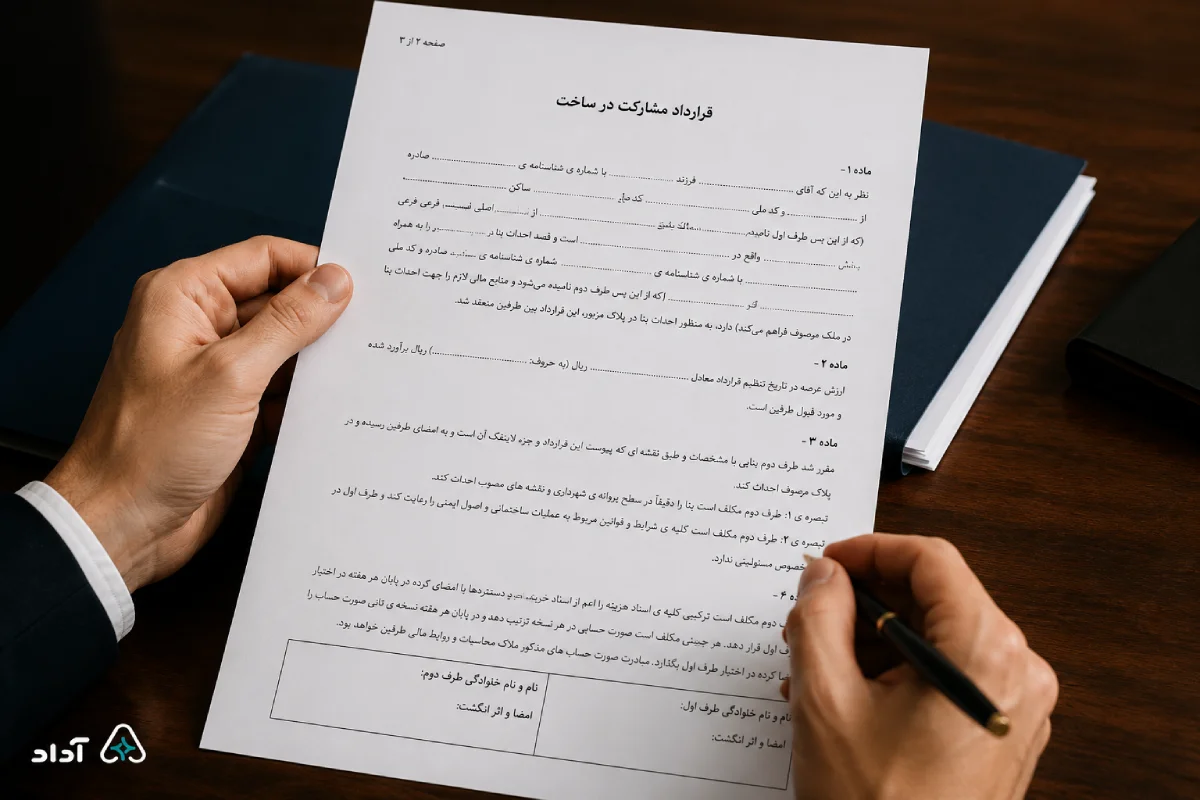 صفحه ۲ از ۳
قرارداد مشارکت در ساخت
ماده ۱-
نظر به این که آقای ........................ فرزند ................ با شماره ی شناسنامه ی ..................... صادره
از ................ و کد ملی ..................... کد ..................... ساکن .....................
(که از این پس طرف اول ..................... از ......... اصلی فرعی
..................... واقع در ..................... است و قصد احداث بنا در ............ را به همراه
..................... با شماره ی شناسنامه ی ..................... شماره ی شناسنامه ی ......... صادره و کد ملی
..................... که از این پس طرف دوم نامیده می‌شود و منابع مالی لازم را جهت احداث بنا
در ملک مرصوف فراهم می‌کند) دارد، به منظور احداث بنا در پلاک مزبور، این قرارداد بین طرفین منعقد شد.
ماده ۲ -
ارزش عرصه در تاریخ تنظیم قرارداد معادل ..................... ریال (به حروف: .....................) ریال برآورد شده
و مورد قبول طرفین است.
ماده ۳ -
مقرر شد طرف دوم بنایی با مشخصات و طبق نقشه ای که پیوست این قرارداد و جزء لاینفک آن است و به امضای طرفین رسیده و در
پلاک مرصوف احداث کند.
تبصره ی ۱: طرف دوم مکلف است بنا را دقیقاً در سطح پروانه ی شهرداری و نقشه های مصوب احداث کند.
تبصره ی ۲: طرف دوم مکلف است کلیه ی شرایط و قوانین مربوط به عملیات ساختمانی و اصول ایمنی را رعایت کند و طرف اول در
خصوص مسئولیتی ندارد.
۴ -
دوم مکلف است ترکیبی کلیه ی اسناد هزینه را اعم از اسناد خرید، دستنزدها با امضای کرده در پایان هر هفته در اختیار
اول قرار دهد. هر جبینی مکلف است صورت حسابی در هر نسخه ترتیب دهد و در پایان هر هفته نسخه ی ثانی صورت حساب را
کرده در اختیار طرف اول بگذارد. مبادرت صورت حساب های مذکور ملاک محاسبات و روابط مالی طرفین خواهد بود.
نام و نام خلوادگی طرف اول:
امضا و اثر انگشت:
نام و نام خلوادگی طرف دوم:
امضا و اثر انگشت:
آداد